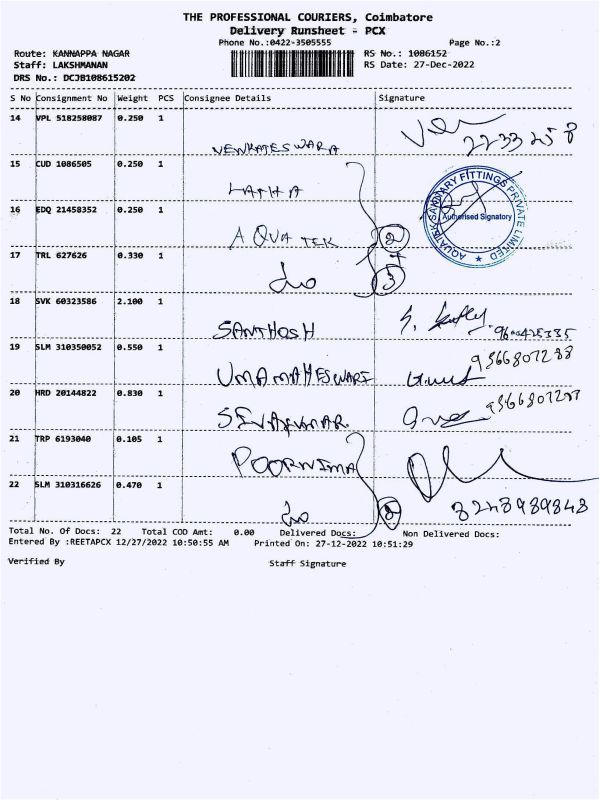 THE PROFESSIONAL COURIERS, Coimbatore
Delivery Runsheet - PCX
Phone No.:0422-3505555 Page No.:2
Route: KANNAPPA NAGAR RS No.: 1086152
Staff: LAKSHMANAN RS Date: 27-Dec-2022
DRS No.: DCJB108615202
S No Consignment No Weight PCS Consignee Details Signature
14 VPL 518258087 0.250 1
VENKATESWARA
15 CUD 1086505 0.250 1
LATHA
16 EDQ 21458352 0.250 1
AQUA TEK 2
AQUATEK SANITARY FITTINGS PRIVATE LIMITED
Authorised Signatory
17 TRL 627626 0.330 1
3
18 SVK 60323586 2.100 1
SANTHOSH
19 SLM 310350052 0.550 1
UMAMAHESWARI 9566807288
20 HRD 20144822 0.830 1
SIVAKUMAR
21 TRP 6193040 0.105 1
POORNIMA
22 SLM 310316626 0.470 1
2 8248989848
Total No. Of Docs: 22 Total COD Amt: 0.00 Delivered Docs: Non Delivered Docs:
Entered By :REETAPCX 12/27/2022 10:50:55 AM Printed On: 27-12-2022 10:51:29
Verified By Staff Signature